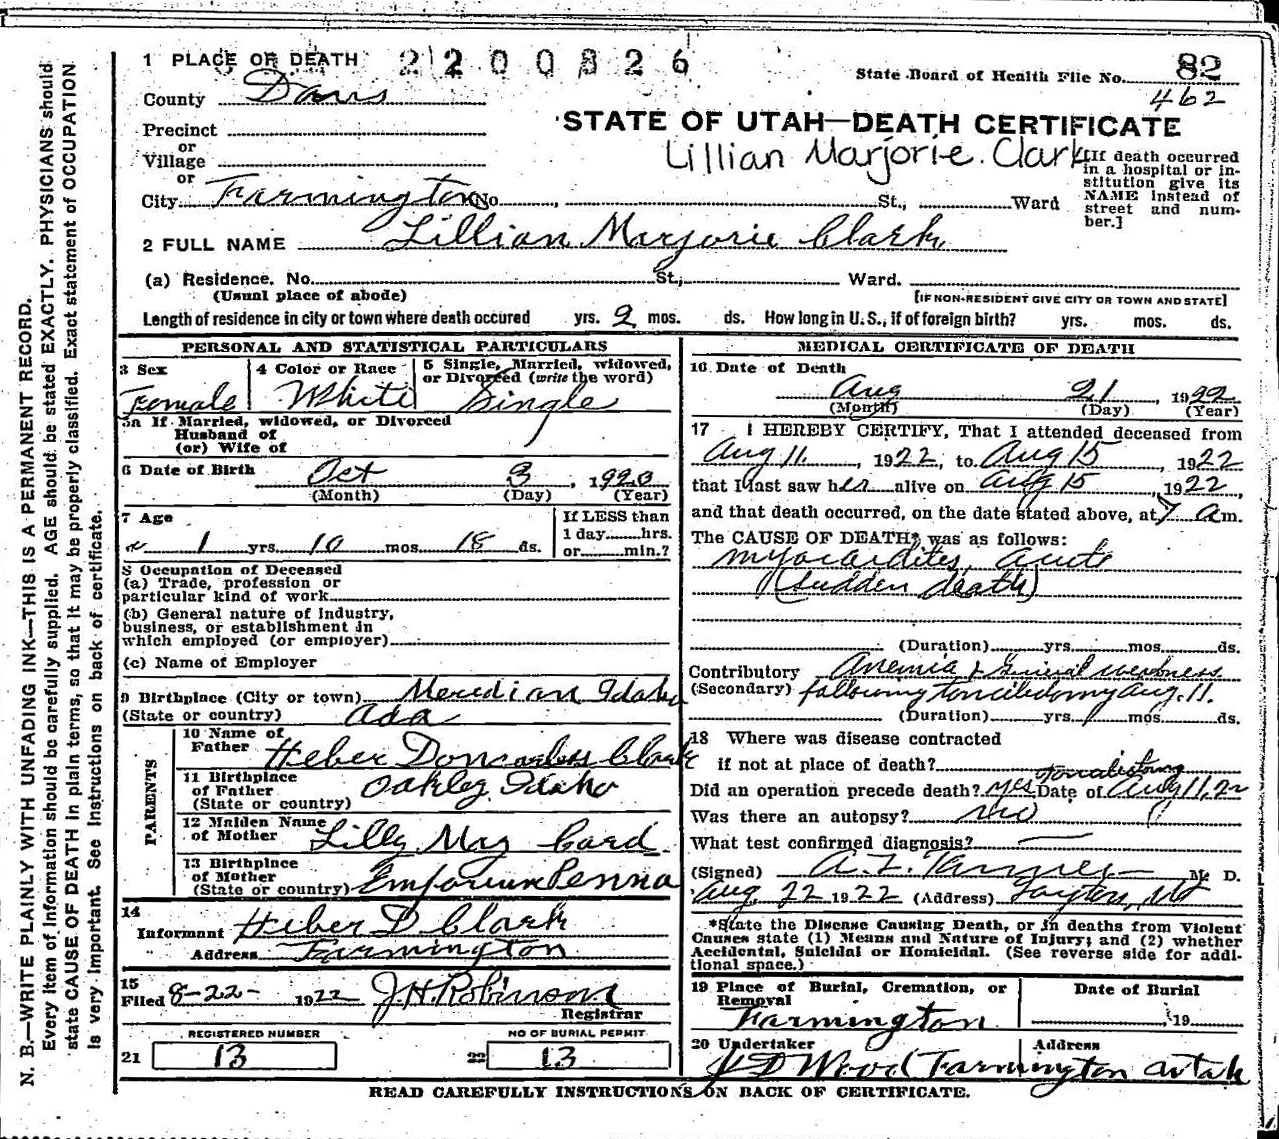 1 PLACE OF DEATH 2200826
State Board of Health File No. 82
462
County Davis
STATE OF UTAH—DEATH CERTIFICATE
Precinct
or
Village
or
Lillian Marjorie Clark
[If death occurred in a hospital or institution give its NAME instead of street and number.]
City Farmington No. St., Ward
2 FULL NAME Lillian Marjorie Clark
(a) Residence. No. St., Ward.
(Usual place of abode) [IF NON-RESIDENT GIVE CITY OR TOWN AND STATE]
Length of residence in city or town where death occured yrs. 2 mos. ds. How long in U. S., if of foreign birth? yrs. mos. ds.
PERSONAL AND STATISTICAL PARTICULARS
3 Sex
Female
4 Color or Race
White
5 Single, Married, widowed, or Divorced (write the word)
Single
5a If Married, widowed, or Divorced
Husband of
(or) Wife of
6 Date of Birth Oct 3, 1920
(Month) (Day) (Year)
7 Age
1 yrs. 10 mos. 18 ds.
If LESS than
1 day hrs.
or min.?
8 Occupation of Deceased
(a) Trade, profession or
particular kind of work
(b) General nature of industry,
business, or establishment in
which employed (or employer)
(c) Name of Employer
9 Birthplace (City or town) Meridian Idaho
(State or country) Ada
PARENTS
10 Name of
Father Heber Clark
11 Birthplace
of Father Oakley Idaho
(State or country)
12 Maiden Name
of Mother Lilly May Card
13 Birthplace
of Mother
(State or country) Emporium Penna
14
Informant Heber D Clark
Address Farmington
15
Filed 8-22- 1922 J.H. Robinson
Registrar
REGISTERED NUMBER
21 13
NO OF BURIAL PERMIT
22 13
MEDICAL CERTIFICATE OF DEATH
16 Date of Death
Aug 21, 1922
(Month) (Day) (Year)
17 I HEREBY CERTIFY, That I attended deceased from
Aug 11, 1922, to Aug 15, 1922
that I last saw her alive on Aug 15, 1922,
and that death occurred, on the date stated above, at 7 a m.
The CAUSE OF DEATH* was as follows:
myocardites, acute
(sudden death)
(Duration) yrs. mos. ds.
Contributory Anemia & General weakness
(Secondary) following Aug. 11.
(Duration) yrs. mos. ds.
18 Where was disease contracted
if not at place of death?
Did an operation precede death? yes Date of Aug 11, 22
Was there an autopsy? no
What test confirmed diagnosis?
(Signed) M. D.
Aug, 22 1922 (Address) Layton, Ut
*State the Disease Causing Death, or in deaths from Violent
Causes state (1) Means and Nature of Injury; and (2) whether
Accidental, Suicidal or Homicidal. (See reverse side for addi-
tional space.)
19 Place of Burial, Cremation, or
Removal
Farmington
Date of Burial
, 19
20 Undertaker Address
D Wood Farmington Utah
READ CAREFULLY INSTRUCTIONS ON BACK OF CERTIFICATE.
N. B.—WRITE PLAINLY WITH UNFADING INK—THIS IS A PERMANENT RECORD.
Every item of information should be carefully supplied. AGE should be stated EXACTLY. PHYSICIANS should
state CAUSE OF DEATH in plain terms, so that it may be properly classified. Exact statement of OCCUPATION
is very important. See Instructions on back of certificate.